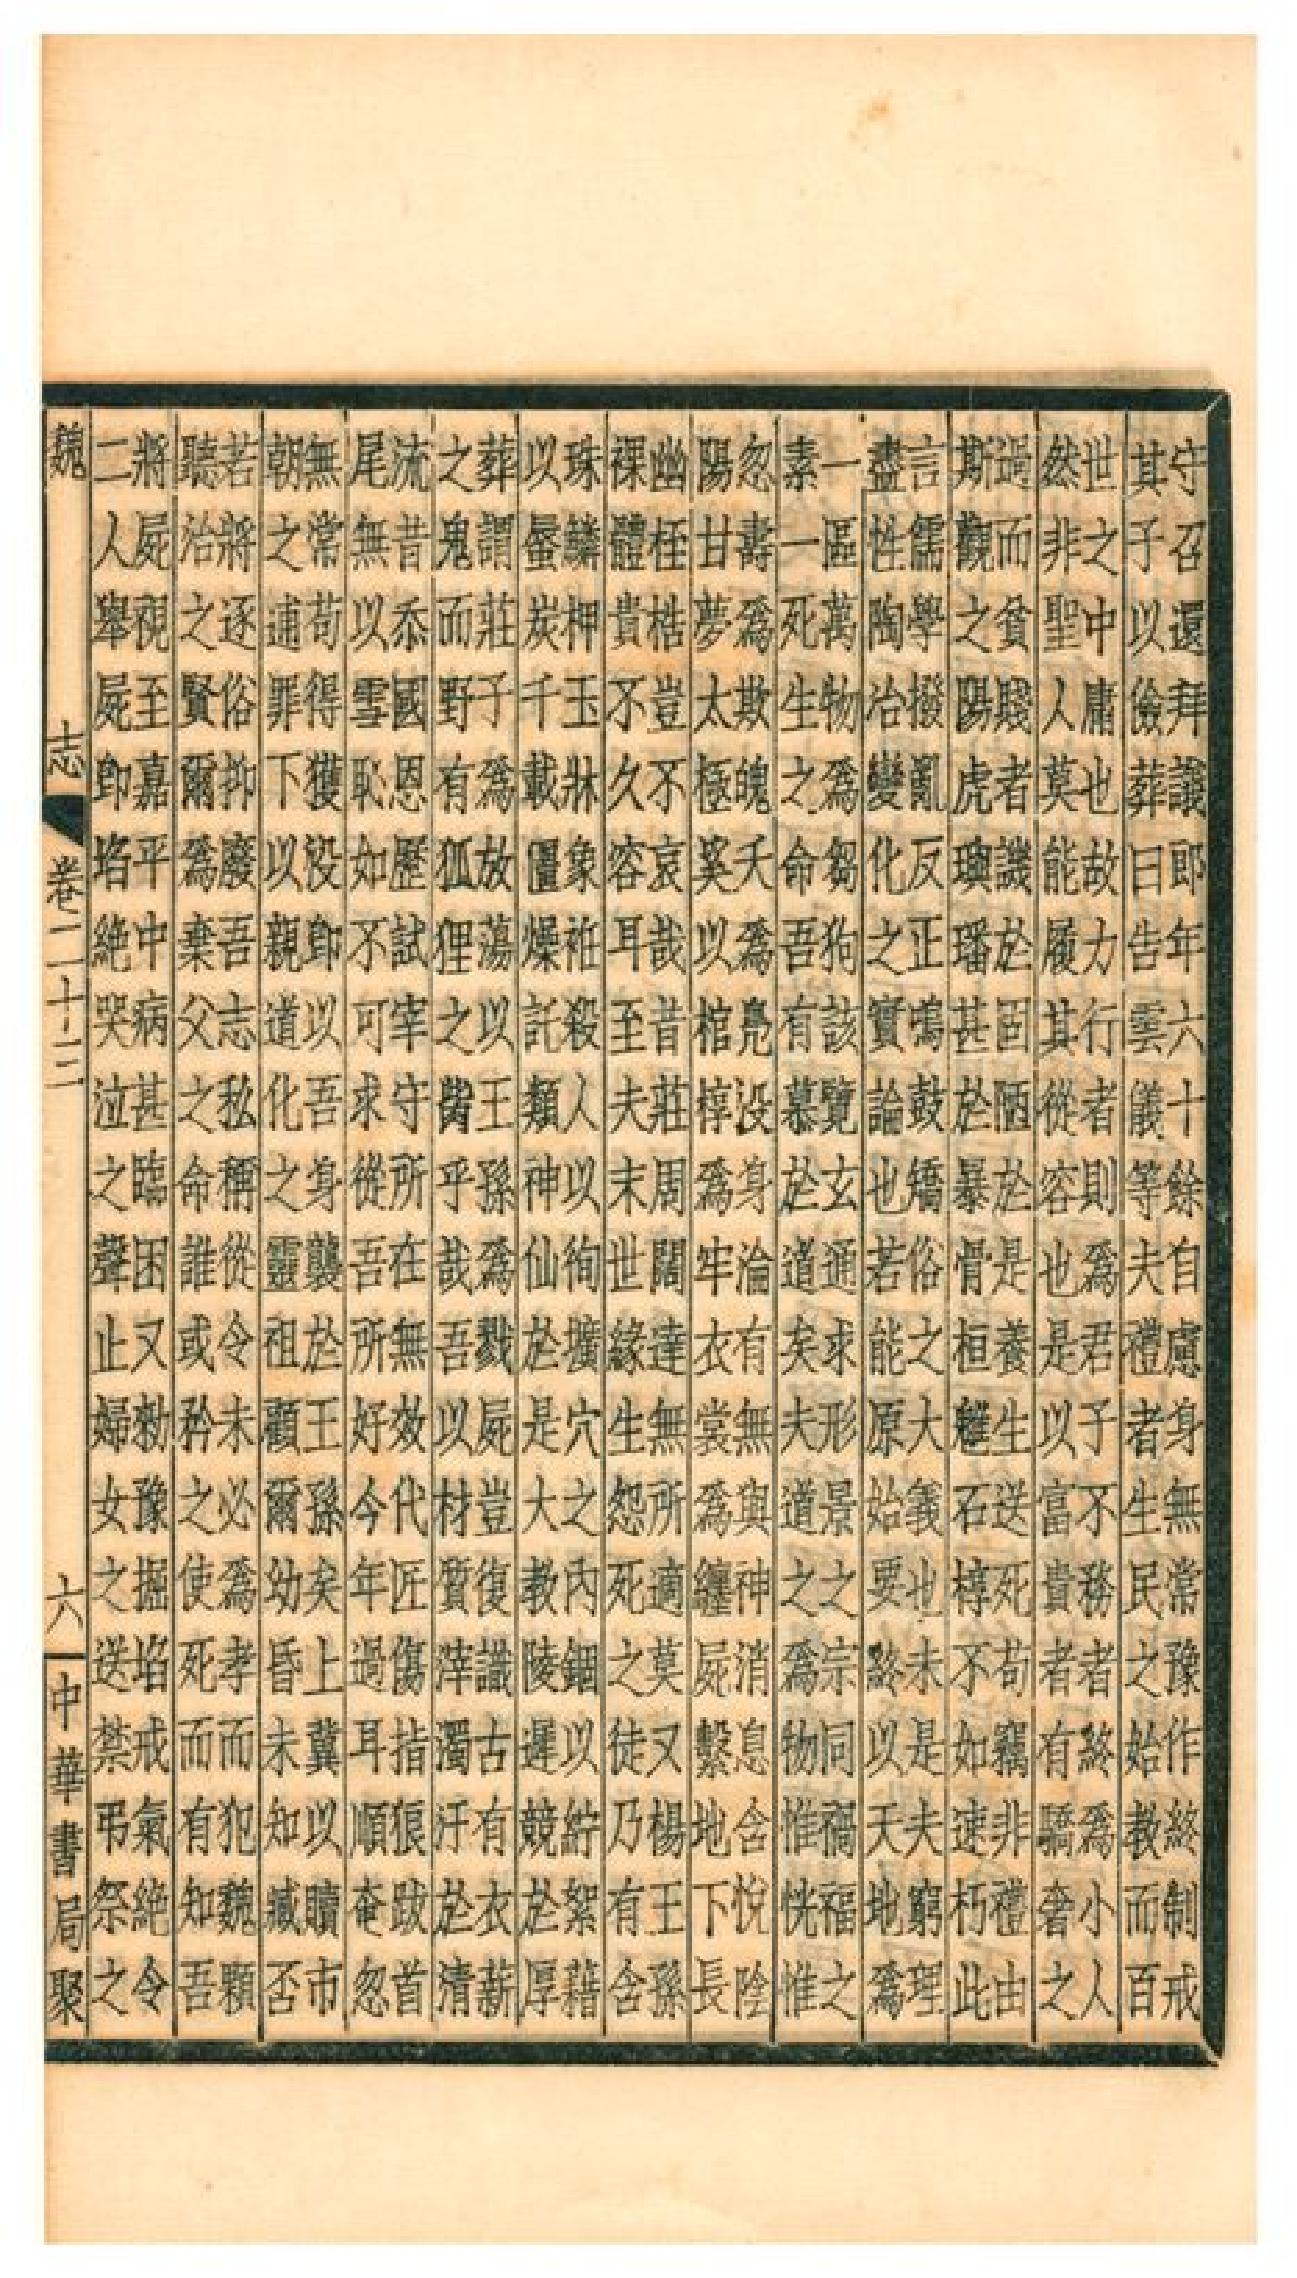 守召還拜議郎年六十餘自慮身無常豫作終制戒
其子以儉葬曰告雲儀等夫禮者生民之始教而百
世之中庸也故力行者則爲君子不務者終爲小人
然非聖人莫能履其從容也是以富貴者有驕奢之
過而貧賤者譏於固陋於是養生送死苟竊非禮由
斯觀之陽虎璵璠甚於暴骨桓魋石椁不如速朽此
言儒學撥亂反正鳴鼓矯俗之大義也未是夫窮理
盡性陶冶變化之實論也若能原始要終以天地爲
一區萬物爲芻狗該覽玄通求形景之宗同禍福之
素一死生之命吾有慕於道矣夫道之爲物惟恍惟
忽壽爲欺魄夭爲鳧没身淪有無與神消息含悅陰
陽甘夢太極奚以棺椁爲牢衣裳爲纏屍繫地下長
幽桎梏豈不哀哉昔莊周闊達無所適莫又楊王孫
裸體貴不久容耳至夫末世緣生怨死之徒乃有含
珠鱗柙玉牀象衽殺人以絢壙穴之內錮以紵絮藉
以蜃炭千載僵燥託類神仙於是大教陵遲競於厚
葬謂莊子爲放蕩以王孫爲戮屍豈復識古有衣薪
之鬼而野有狐狸之胔乎哉吾以材質滓濁汙於清
流昔忝國恩歷試宰守所在無效代匠傷指狼跋首
尾無以雪恥如不可求從吾所好今年過耳順奄忽
無常苟得獲没卽以吾身襲於王孫矣上冀以贖市
朝之逋罪下以親道化之靈祖顧爾幼昏未知臧否
若將逐俗抑廢吾志私稱從令未必爲孝而犯魏顆
聽治之賢爾爲棄父之命誰或矜之使死而有知吾
將屍視至嘉平中病甚臨困又勑豫掘埳戒氣絕令
二人舉屍卽埳絕哭泣之聲止婦女之送禁弔祭之
魏志 卷二十三 六 中華書局聚